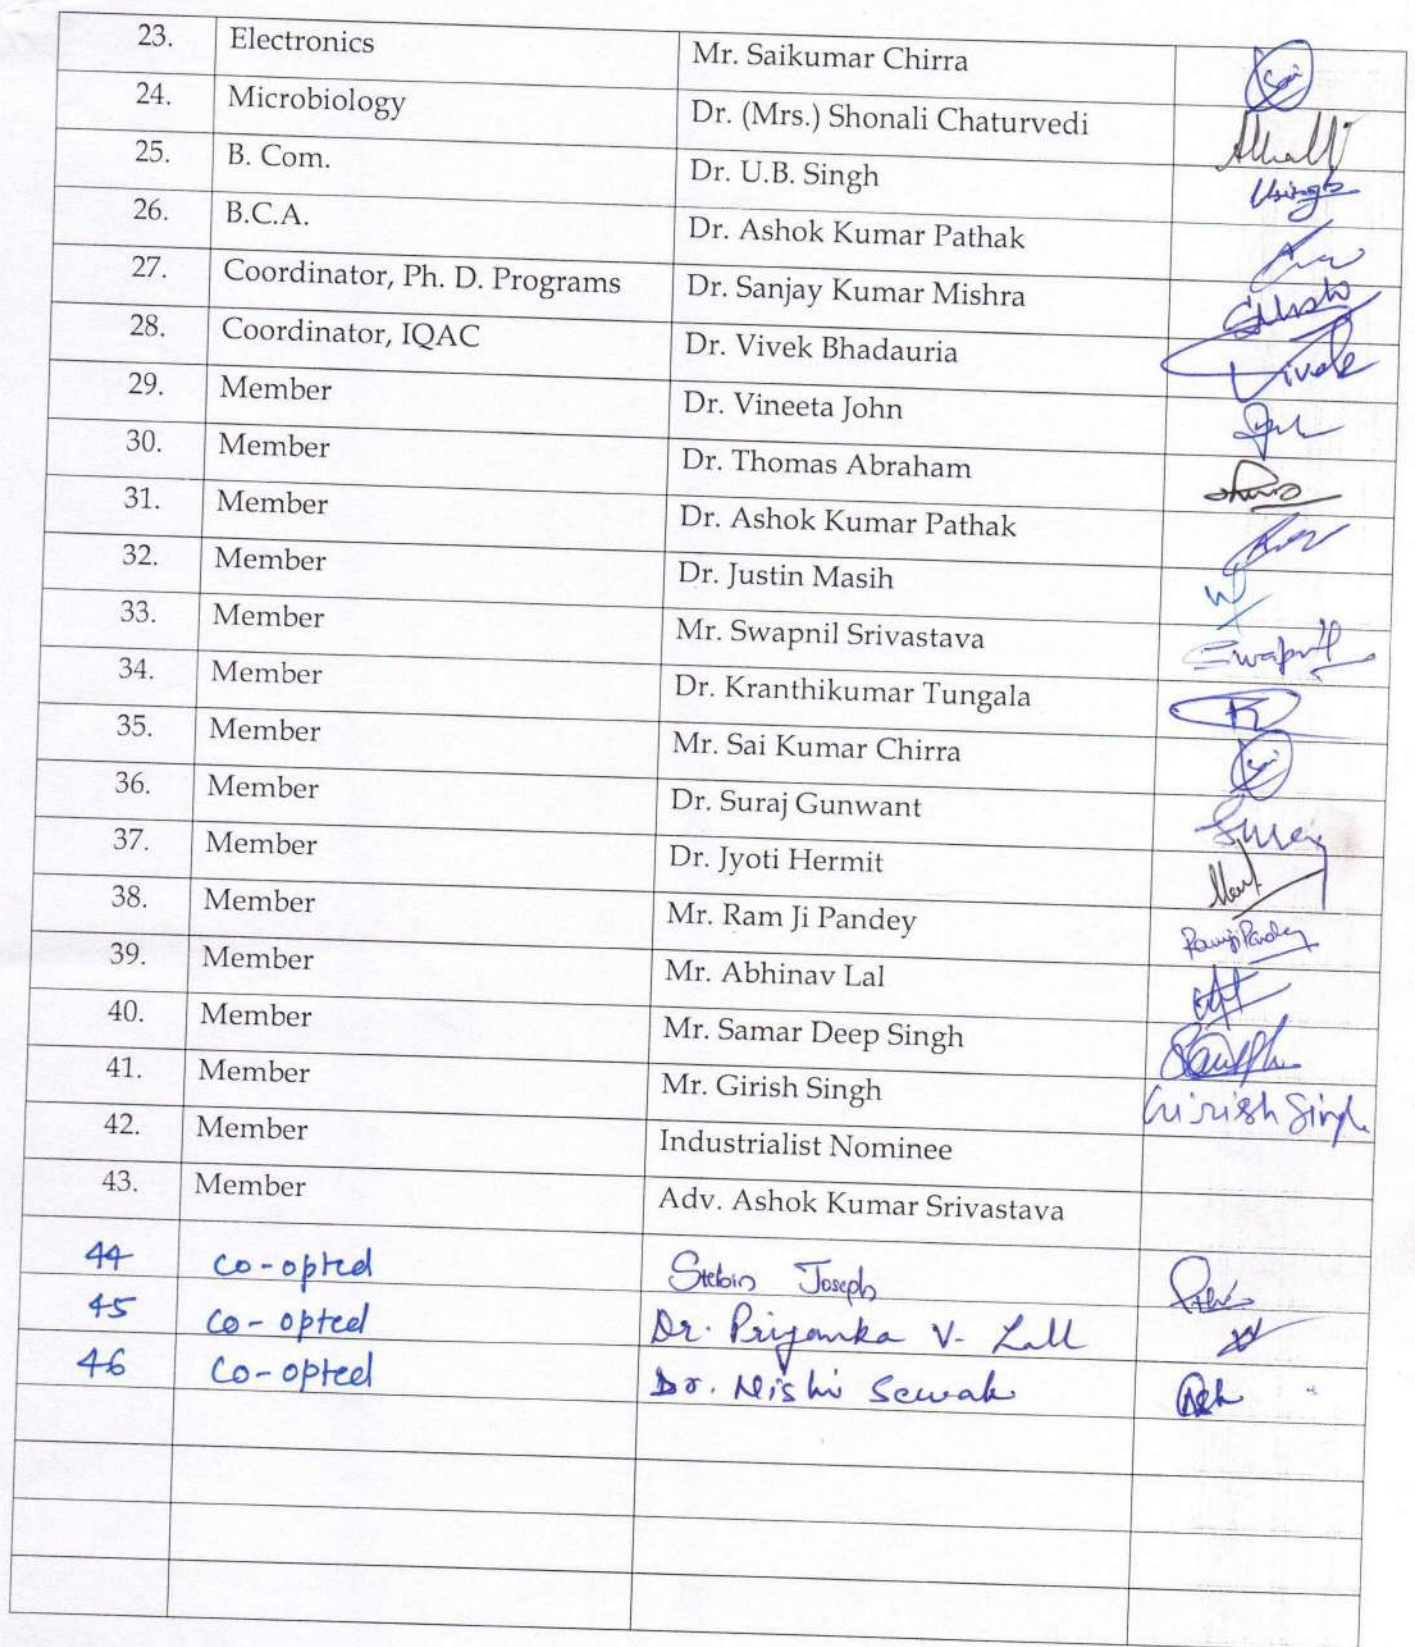 23. Electronics Mr. Saikumar Chirra Sai
24. Microbiology Dr. (Mrs.) Shonali Chaturvedi
25. B. Com. Dr. U.B. Singh USingh
26. B.C.A. Dr. Ashok Kumar Pathak
27. Coordinator, Ph. D. Programs Dr. Sanjay Kumar Mishra
28. Coordinator, IQAC Dr. Vivek Bhadauria Vivek
29. Member Dr. Vineeta John
30. Member Dr. Thomas Abraham
31. Member Dr. Ashok Kumar Pathak
32. Member Dr. Justin Masih
33. Member Mr. Swapnil Srivastava Swapnil
34. Member Dr. Kranthikumar Tungala
35. Member Mr. Sai Kumar Chirra Sai
36. Member Dr. Suraj Gunwant Suraj
37. Member Dr. Jyoti Hermit
38. Member Mr. Ram Ji Pandey Ramji Pandey
39. Member Mr. Abhinav Lal
40. Member Mr. Samar Deep Singh
41. Member Mr. Girish Singh Girish Singh
42. Member Industrialist Nominee
43. Member Adv. Ashok Kumar Srivastava
44 Co-opted Stebin Joseph
45 Co-opted Dr. Priyanka V. Lall
46 Co-opted Dr. Nishi Sewak